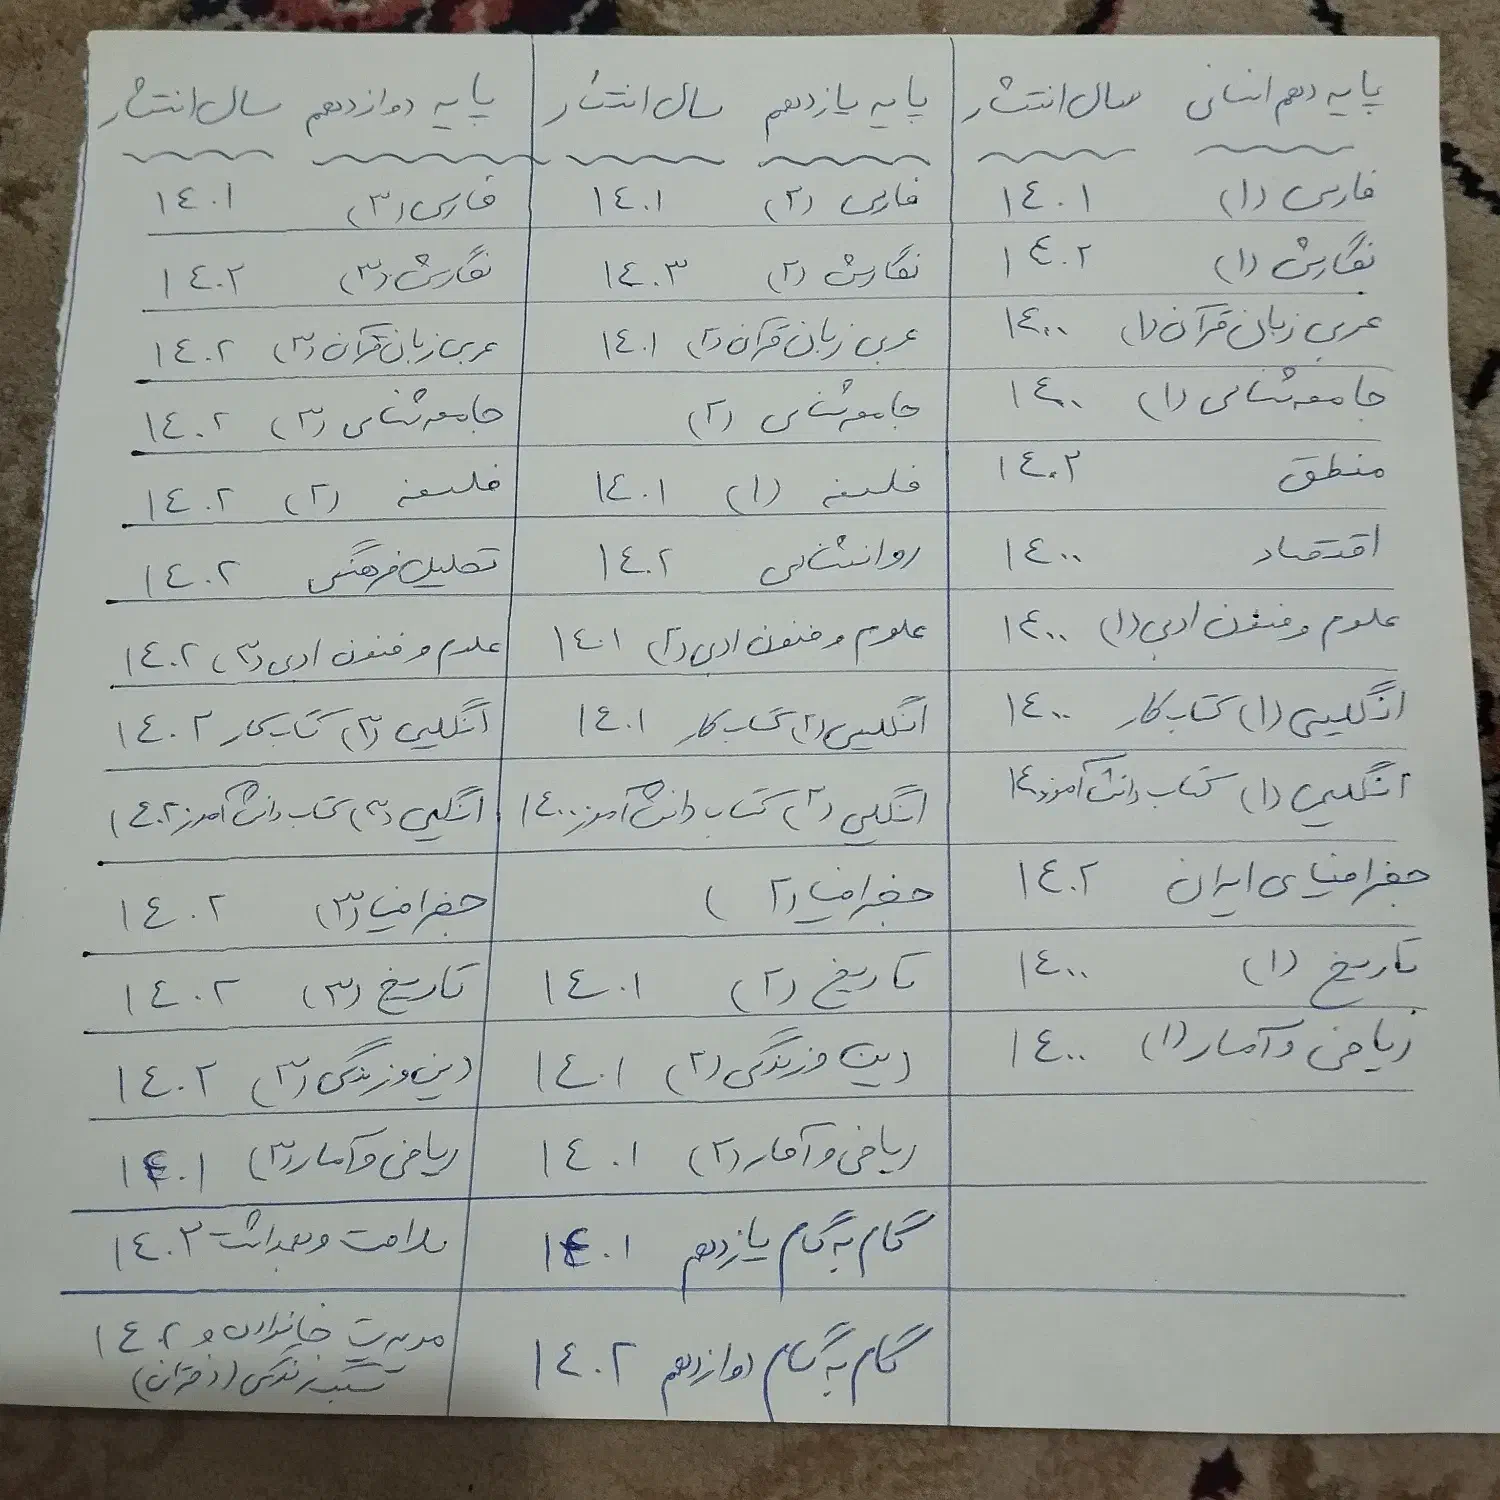 پایه دهم انسانی سال انتشار پایه یازدهم سال انتشار پایه دوازدهم سال انتشار
فارسی (۱) ۱۴۰۱ فارسی (۲) ۱۴۰۱ فارسی (۳) ۱۴۰۱
نگارش (۱) ۱۴۰۲ نگارش (۲) ۱۴۰۳ نگارش (۳) ۱۴۰۲
عربی زبان قرآن (۱) ۱۴۰۰ عربی زبان قرآن (۲) ۱۴۰۱ عربی زبان قرآن (۳) ۱۴۰۲
جامعه شناسی (۱) ۱۴۰۰ جامعه شناسی (۲) جامعه شناسی (۳) ۱۴۰۲
منطق ۱۴۰۲ فلسفه (۱) ۱۴۰۱ فلسفه (۲) ۱۴۰۲
اقتصاد ۱۴۰۰ روانشناسی ۱۴۰۲ تحلیل فرهنگی ۱۴۰۲
علوم و فنون ادبی (۱) ۱۴۰۰ علوم و فنون ادبی (۲) ۱۴۰۱ علوم و فنون ادبی (۳) ۱۴۰۲
انگلیسی (۱) کتاب کار ۱۴۰۰ انگلیسی (۲) کتاب کار ۱۴۰۱ انگلیسی (۳) کتاب کار ۱۴۰۲
انگلیسی (۱) کتاب دانش آموز انگلیسی (۲) کتاب دانش آموز ۱۴۰۰ انگلیسی (۳) کتاب دانش آموز ۱۴۰۲
جغرافیای ایران ۱۴۰۲ جغرافیا (۲) جغرافیا (۳) ۱۴۰۲
تاریخ (۱) ۱۴۰۰ تاریخ (۲) ۱۴۰۱ تاریخ (۳) ۱۴۰۲
ریاضی و آمار (۱) ۱۴۰۰ دین و زندگی (۲) ۱۴۰۱ دین و زندگی (۳) ۱۴۰۲
ریاضی و آمار (۲) ۱۴۰۱ ریاضی و آمار (۳) ۱۴۰۱
گام به گام یازدهم ۱۴۰۱ سلامت و بهداشت ۱۴۰۲
گام به گام دوازدهم ۱۴۰۲ مدیریت خانواده و ۱۴۰۲
سبک زندگی (دختران)